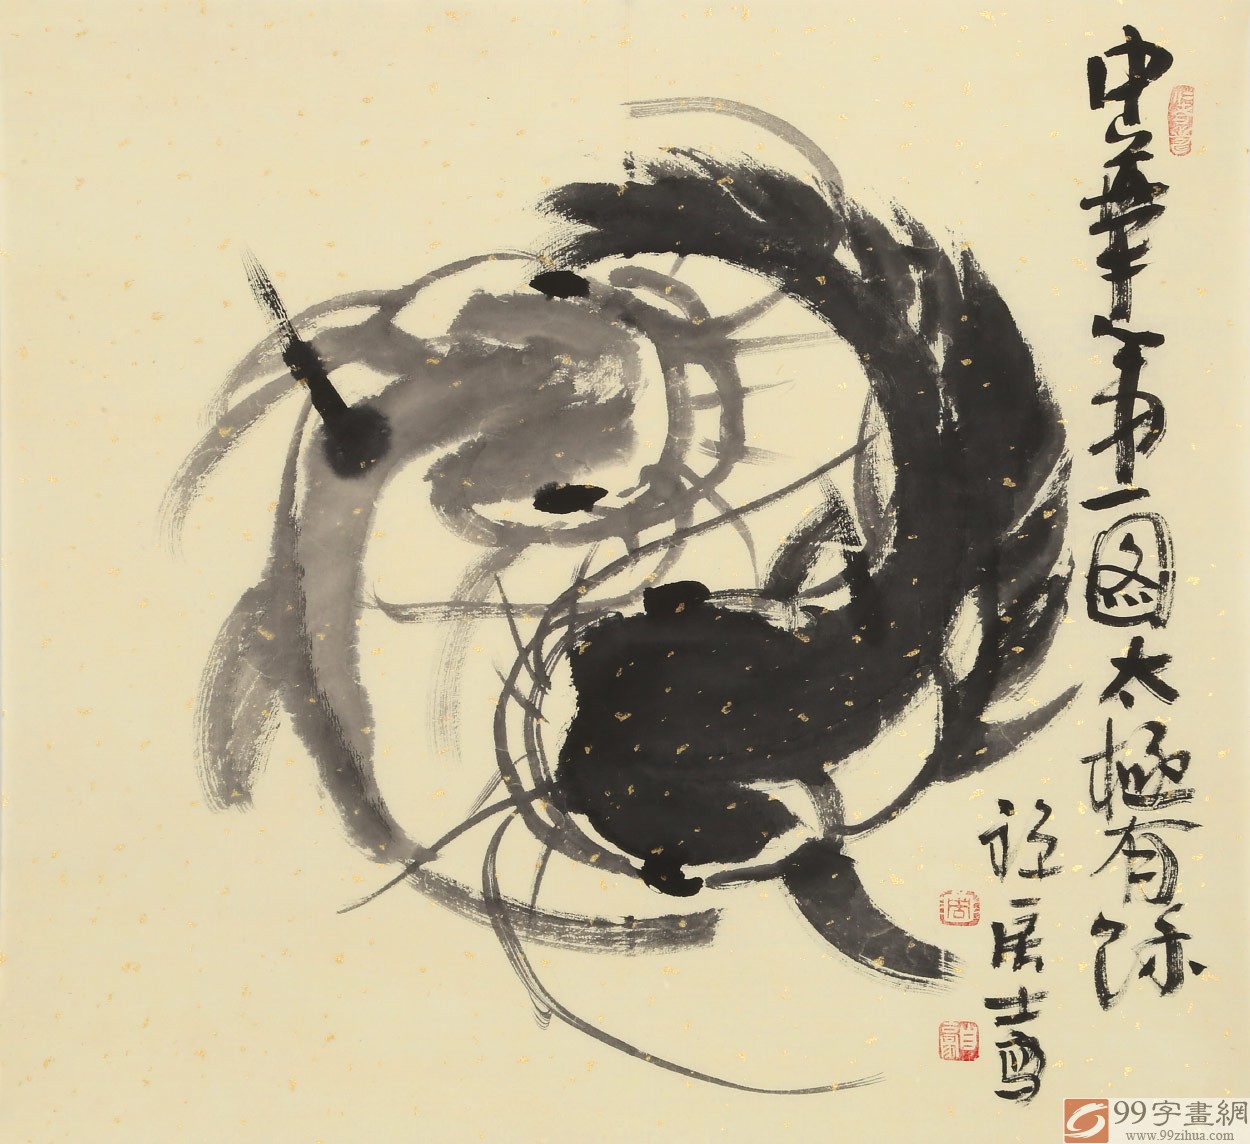 中華第一图太極有余
居士写
99字畫網
www.99zihua.com